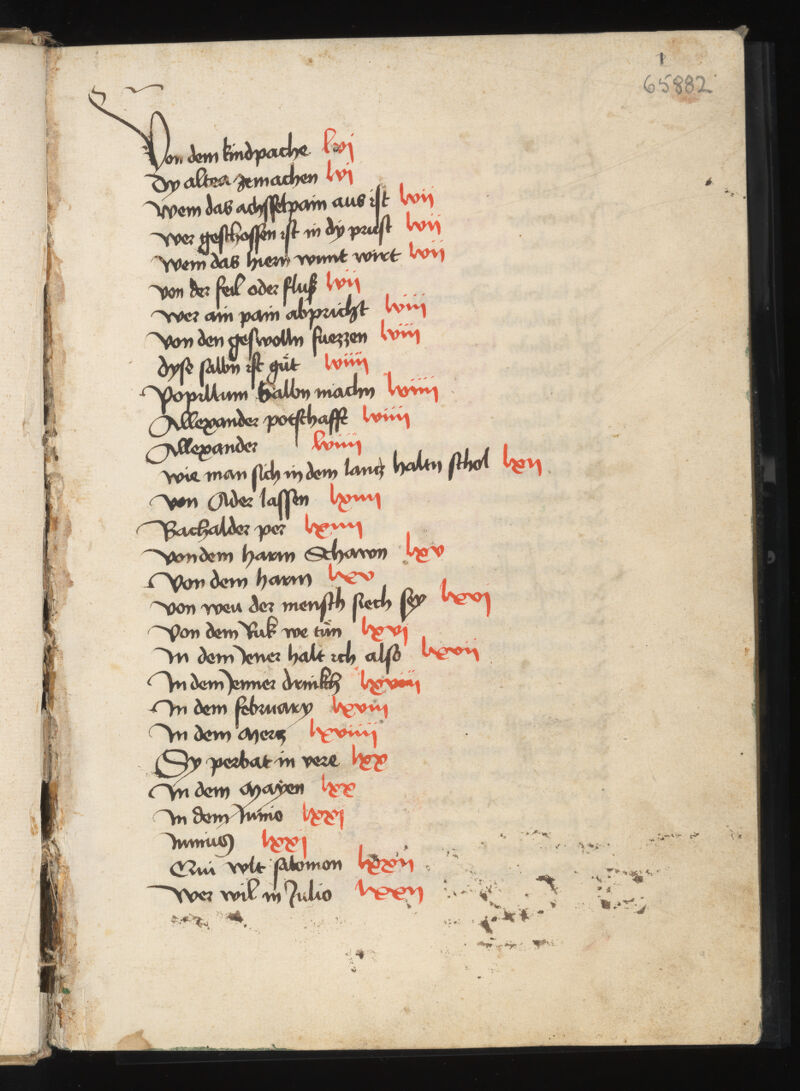 1
65882
Von dem kindpache lvi
Dy altea zemachen lvi
Wem das achsselpain aus ist lvii
Wer geschossen ist in dy prust lvii
Wem das hiern wunt wirt lvii
von der feil oder fluß lvii
Wer ain pain abpricht lviii
Von den geswolln fuezzen lviii
Dyse salbn ist güt lviiii
Popillium Salbn machn lviiii
Allexander potschafft lviiii
Allexander lviiii
Wie man sich in dem lancz haltn schol lxii
Von Ader lassen lxiiii
Bachalder per lxiiii
Von dem harm Schawn lxv
Von dem harm lxv
Von weu der mensch siech sey lxvi
Von dem Ruk we tün lxvi
In dem Jener halt ich also lxvii
In dem Jenner drinkh
In dem february lxviii
In dem Mercz lxviiii
Sy perbat in vere lxx
In dem Mayen lxx
In dem Junio lxxi
Junius lxxi
Qui wlt salomon lxxii
Wer wil in Julio lxxii